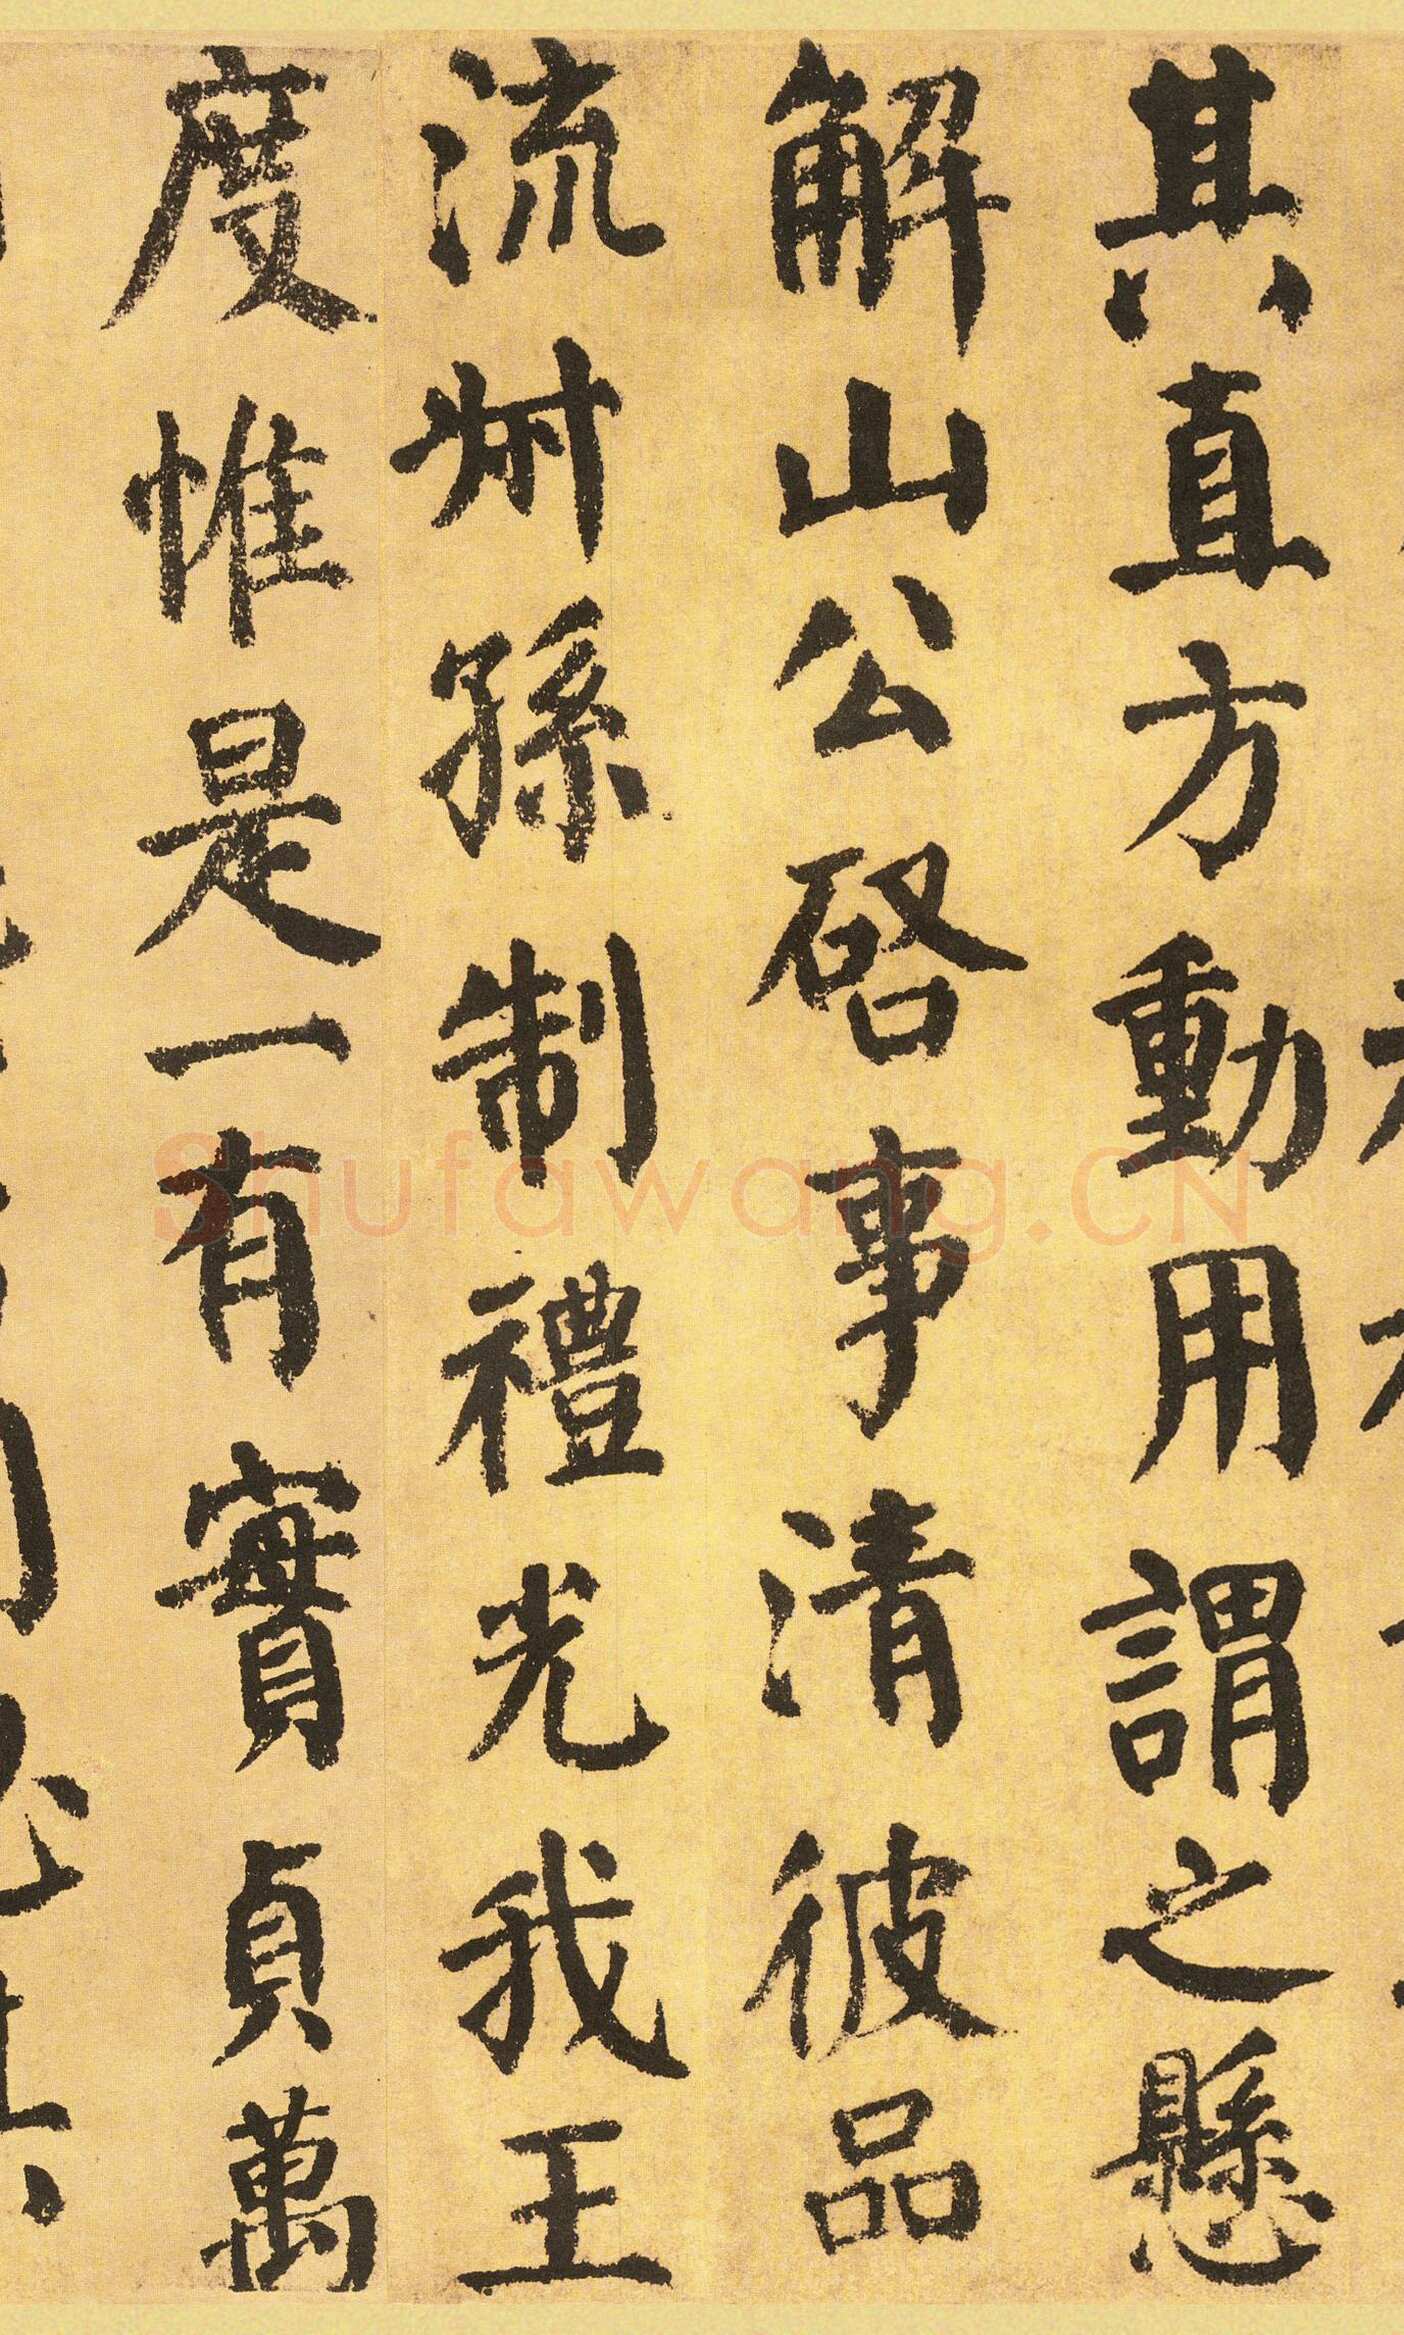 其直方動用謂之懸
解山公啓事清彼品
流𠦑孫制禮光我王
度惟是一有實貞萬
Shufawang.CN